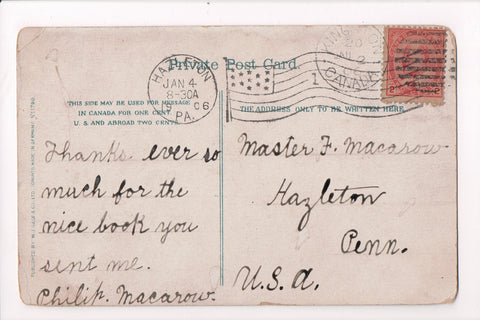 Private Post Card.
HAZLETON
JAN 4
8-30A
06
PA.
20
CANADA
1
THIS SIDE MAY BE USED FOR MESSAGE
IN CANADA FOR ONE CENT
U.S. AND ABROAD TWO CENTS.
THE ADDRESS ONLY TO BE WRITTEN HERE.
Thanks ever so
much for the
nice book you
sent me.
Philip. Macarow.
Master F. Macarow
Hazleton
Penn.
U.S.A.